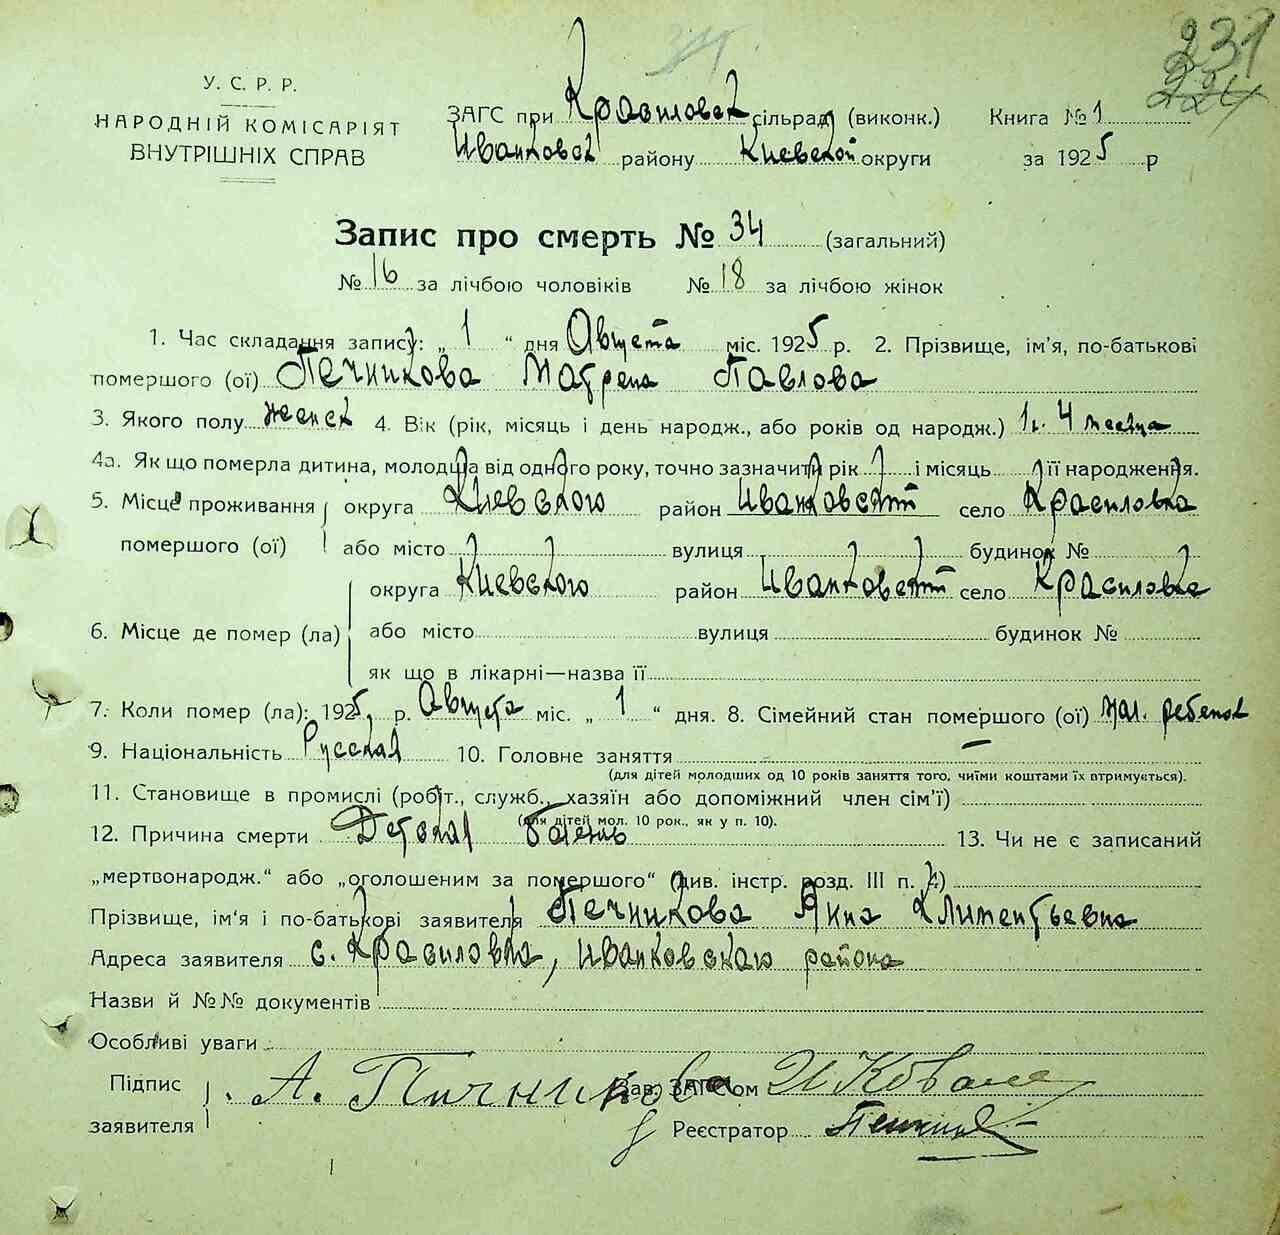 231
224
34.
У. С. Р. Р.
НАРОДНІЙ КОМІСАРІЯТ
ВНУТРІШНІХ СПРАВ
ЗАГС при Красиловск сільрад (виконк.) Книга № 1
Иванков району Киевской округи за 1925 р
Запис про смерть № 34 (загальний)
№ 16 за лічбою чоловіків № 18 за лічбою жінок
1. Час складання запису: „ 1 “ дня Августа міс. 1925 р. 2. Прізвище, ім'я, по-батькові
помершого (ої) Печникова Матрена Павлова
3. Якого полу женск 4. Вік (рік, місяць і день народж., або років од народж.) 1 г. 4 месяца
4а. Як що померла дитина, молодша від одного року, точно зазначити рік і місяць її народження.
5. Місце проживання округа Киевского район Иванковский село Красиловка
помершого (ої) або місто вулиця будинок №
округа Киевского район Иванковский село Красиловка
6. Місце де помер (ла) або місто вулиця будинок №
як що в лікарні—назва її
7. Коли помер (ла): 1925 р. Августа міс. „ 1 “ дня. 8. Сімейний стан помершого (ої) мал. ребенок
9. Національність Русская 10. Головне заняття —
(для дітей молодших од 10 років заняття того, чиїми коштами їх втримується).
11. Становище в промислі (робіт., служб., хазяїн або допоміжний член сім'ї)
(для дітей мол. 10 рок., як у п. 10).
12. Причина смерти Детская болезнь 13. Чи не є записаний
„мертвонародж.“ або „оголошеним за помершого“ (див. інстр. розд. III п. )
Прізвище, ім'я і по-батькові заявителя Печникова Анна Климентьевна
Адреса заявителя с. Красиловка, Иванковского района
Назви й №№ документів
Особливі уваги
Підпис А. Печникова Зав. ЗАГС'ом И Ковал
заявителя Реєстратор